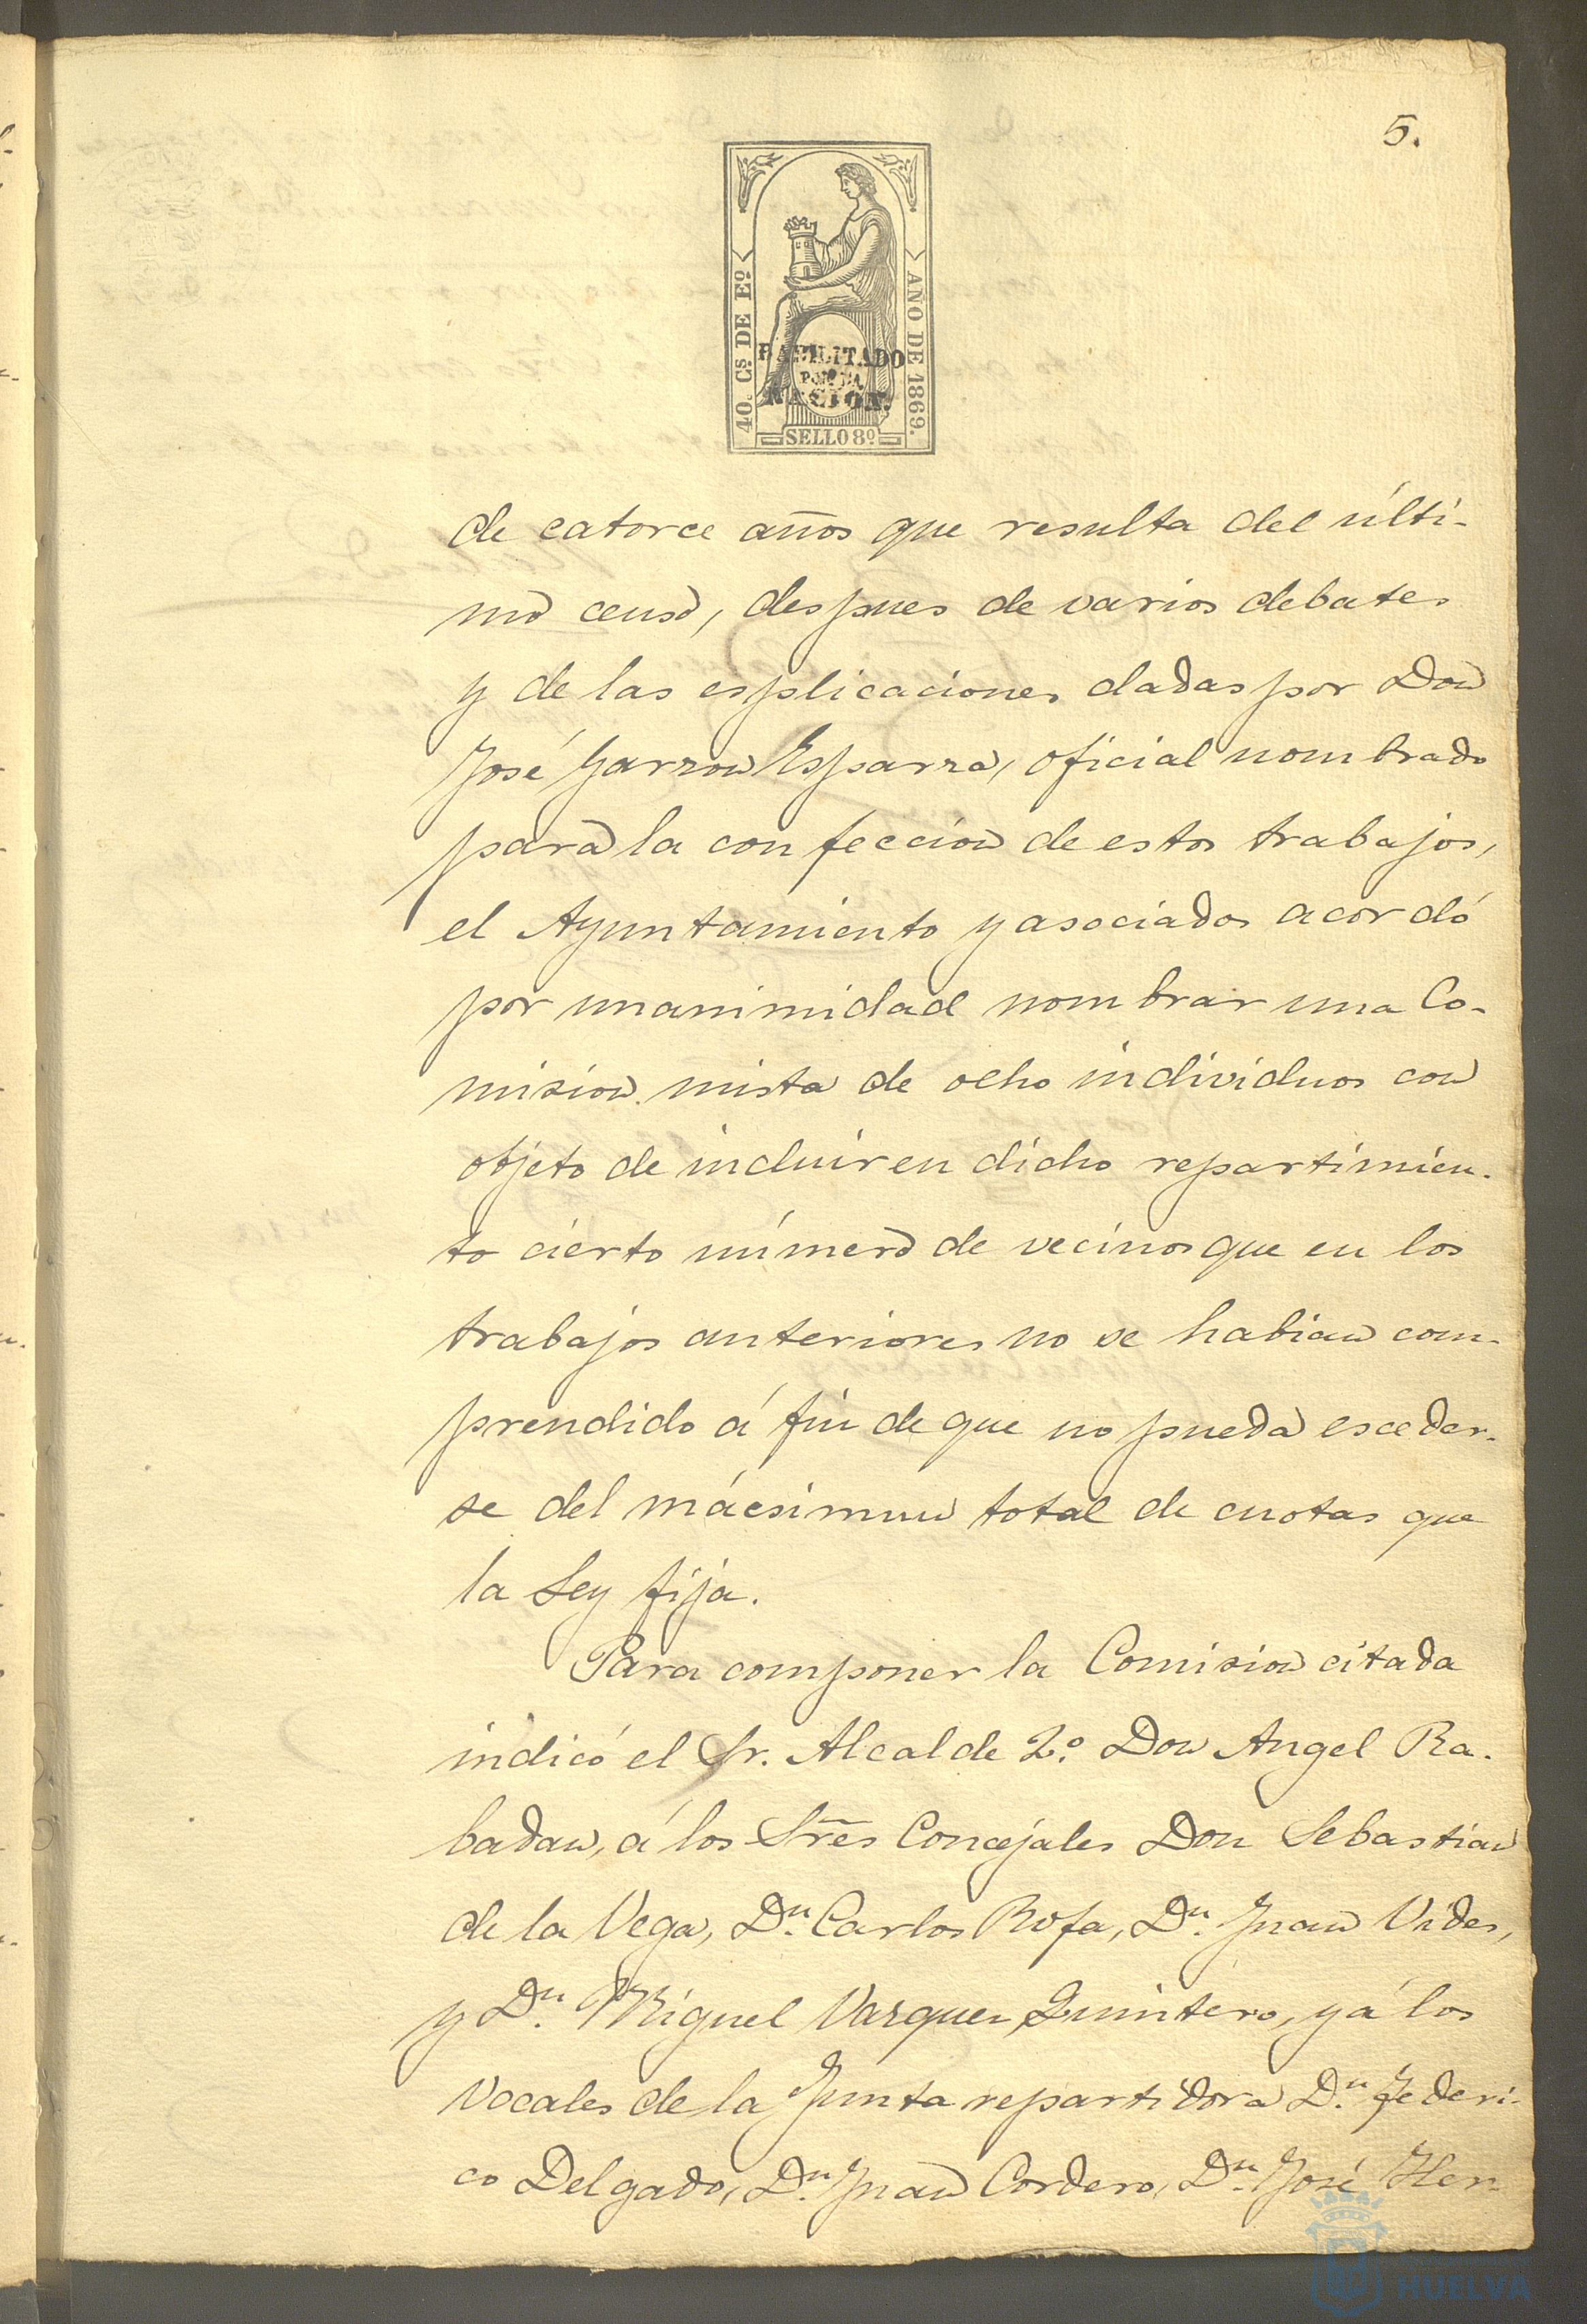 5.
40. Cs DE Eº
AÑO DE 1869.
HABILITADO
POR LA
NACION.
SELLO 8º
de catorce años que resulta del últi-
mo censo, despues de varios debates
y de las esplicaciones dadas por Don
José Garzon Esparza, oficial nombrado
para la confeccion de estos trabajos,
el Ayuntamiento y asociados acordó
por unanimidad nombrar una Co-
mision mista de ocho individuos con
objeto de incluir en dicho repartimien-
to cierto número de vecinos que en los
trabajos anteriores no se habian com-
prendido á fin de que no pueda esceder-
se del mácsimun total de cuotas que
la Ley fija.
Para componer la Comision citada
indicó el Sr. Alcalde 2º Don Angel Ra-
badan, á los Sres Concejales Don Sebastian
de la Vega, Dn. Carlos Rofa, Dn. Juan Vides,
y Dn. Miguel Vazquez Quintero, y á los
Vocales de la Junta repartidora Dn. Federi-
co Delgado, Dn. Juan Cordero, Dn. José Her
HUELVA